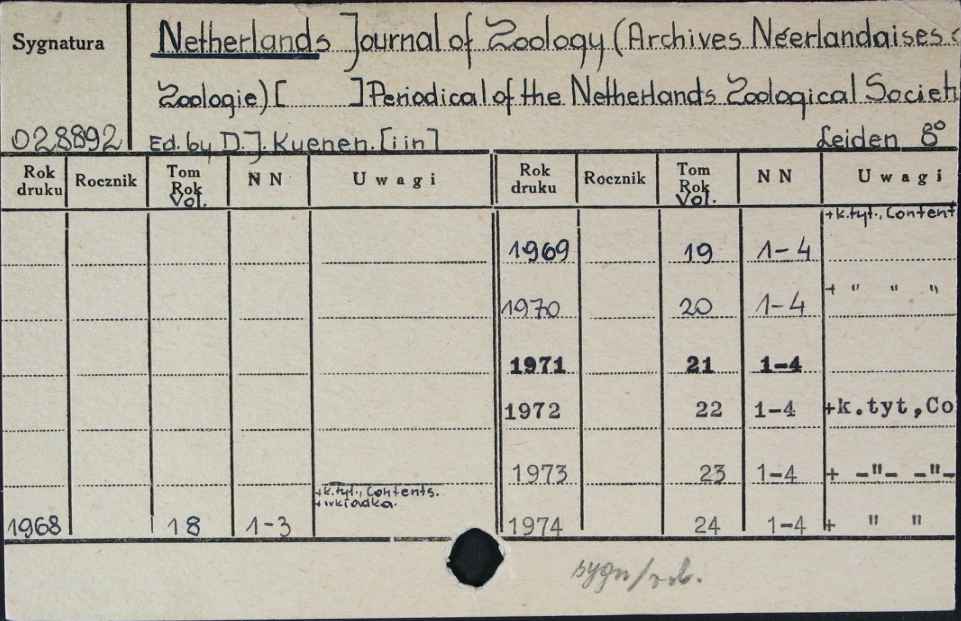 Sygnatura
Netherlands Journal of Zoology (Archives Néerlandaises
Zoologie) [ ] Periodical of the Netherlands Zoological Societ
028892 Ed. by D. J. Kuenen. [i in] Leiden 8°
Rok druku Rocznik Tom Rok Vol. N N Uwagi Rok druku Rocznik Tom Rok Vol. N N Uwagi
+k.tyt., Content
1969 19 1-4
1970 20 1-4 + " " "
1971 21 1-4
1972 22 1-4 +k.tyt,Co
1973 23 1-4 + -"- -"-
+k.tyt., Contents.
+wkładka.
1968 18 1-3 1974 24 1-4 + " "